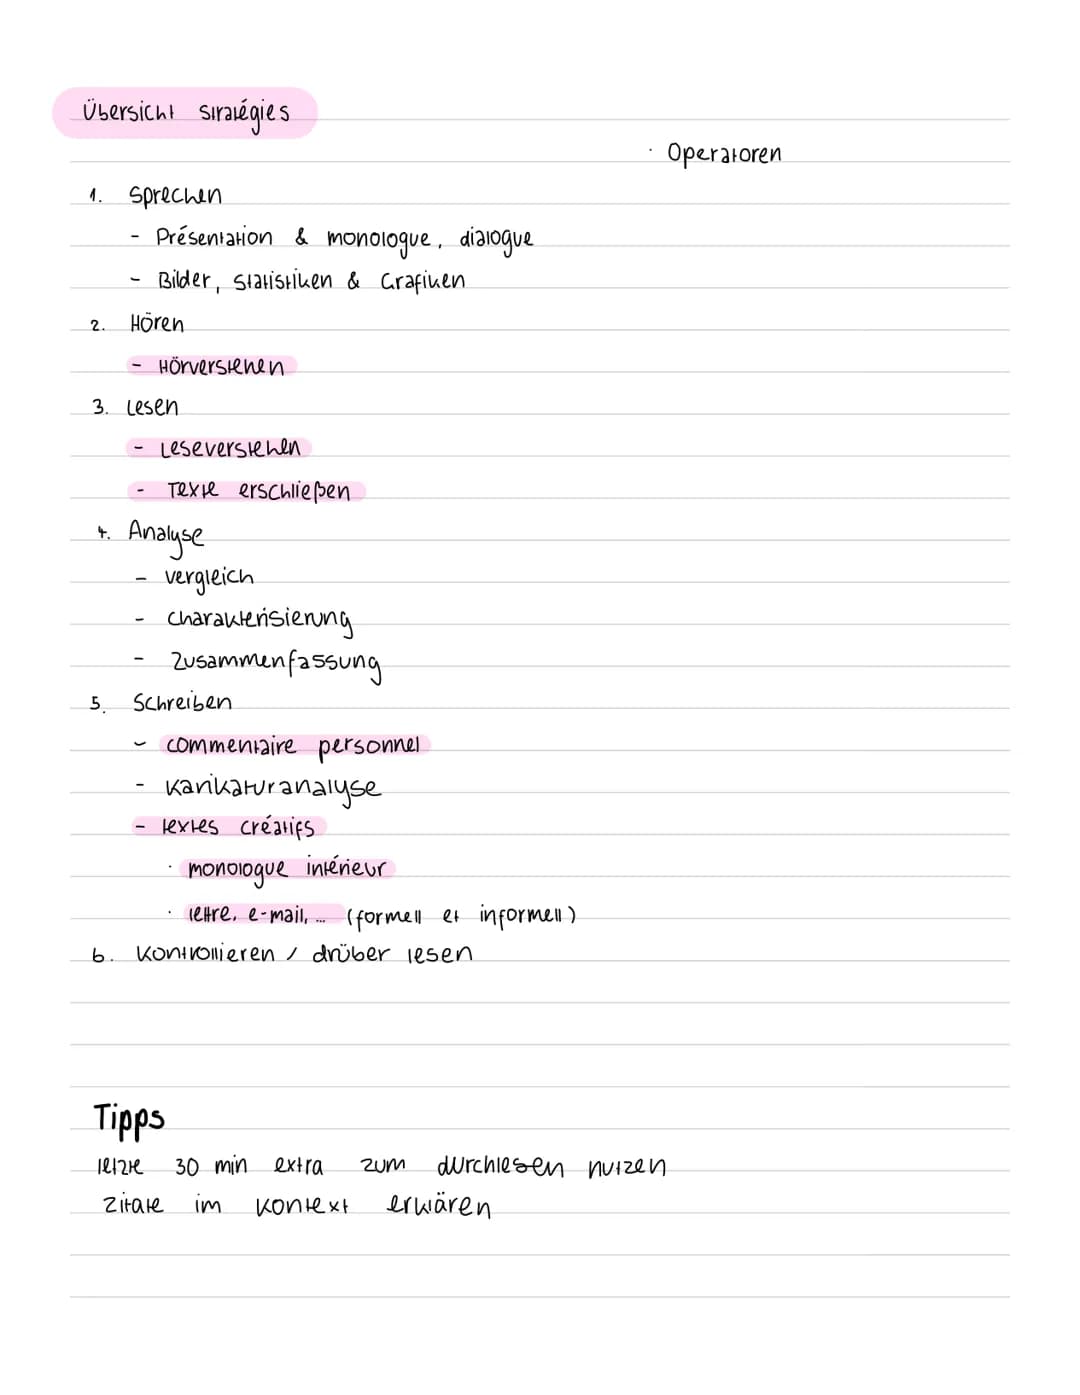 Übersicht stratégies
· Operatoren
1. Sprechen
- Présentation & monologue, dialogue
- Bilder, Statistiken & Grafiken
2. Hören
- Hörverstehen
3. Lesen
- Leseverstehen
- Texte erschließen
4. Analyse
- vergleich
- Charakterisierung
- Zusammenfassung
5. Schreiben
- commentaire personnel
- Karikaturanalyse
- textes créatifs
· monologue intérieur
· lettre, e-mail, ... (formell et informell)
6. Kontrollieren / drüber lesen
Tipps
letzte 30 min extra zum durchlesen nutzen
Zitate im Kontext erklären